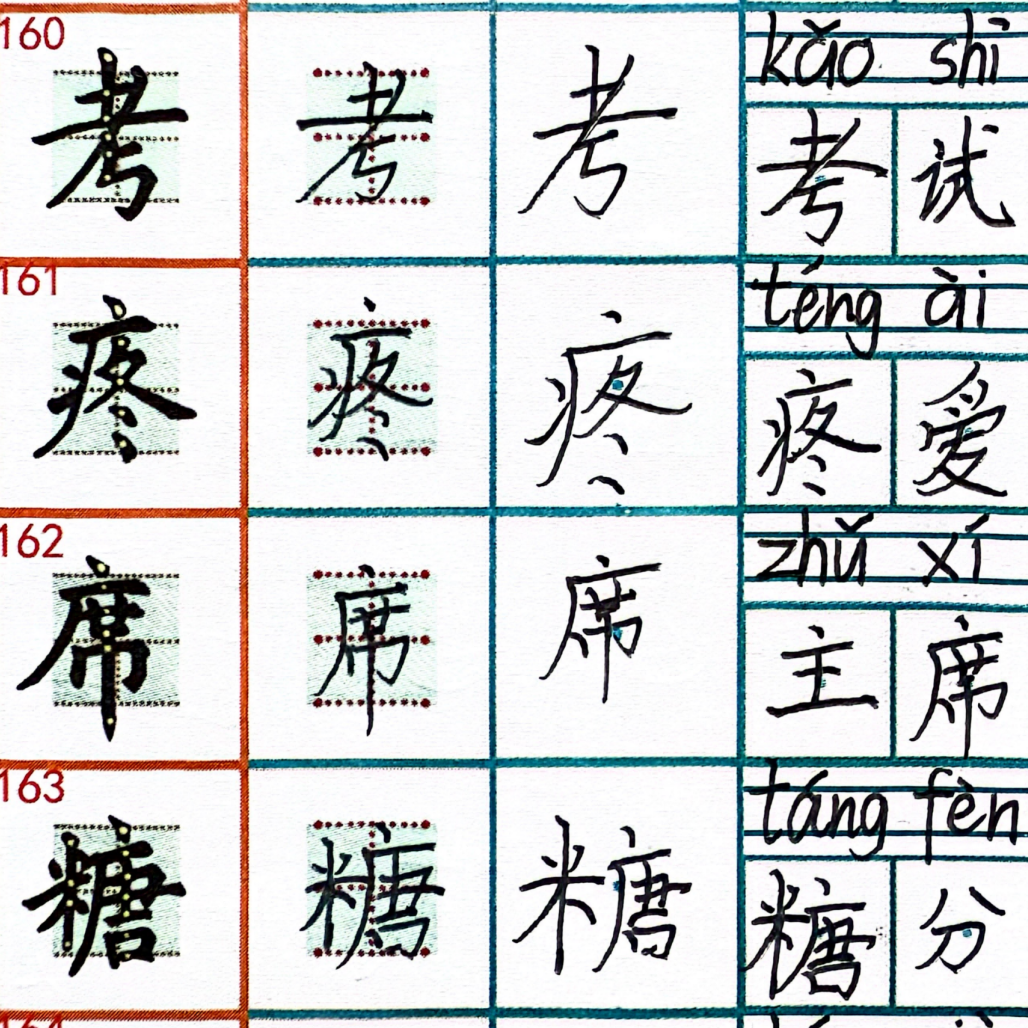 160 考 考 考 kǎo shì
考 试
161 疼 疼 疼 téng ài
疼 爱
162 席 席 席 zhǔ xí
主 席
163 糖 糖 糖 táng fèn
糖 分